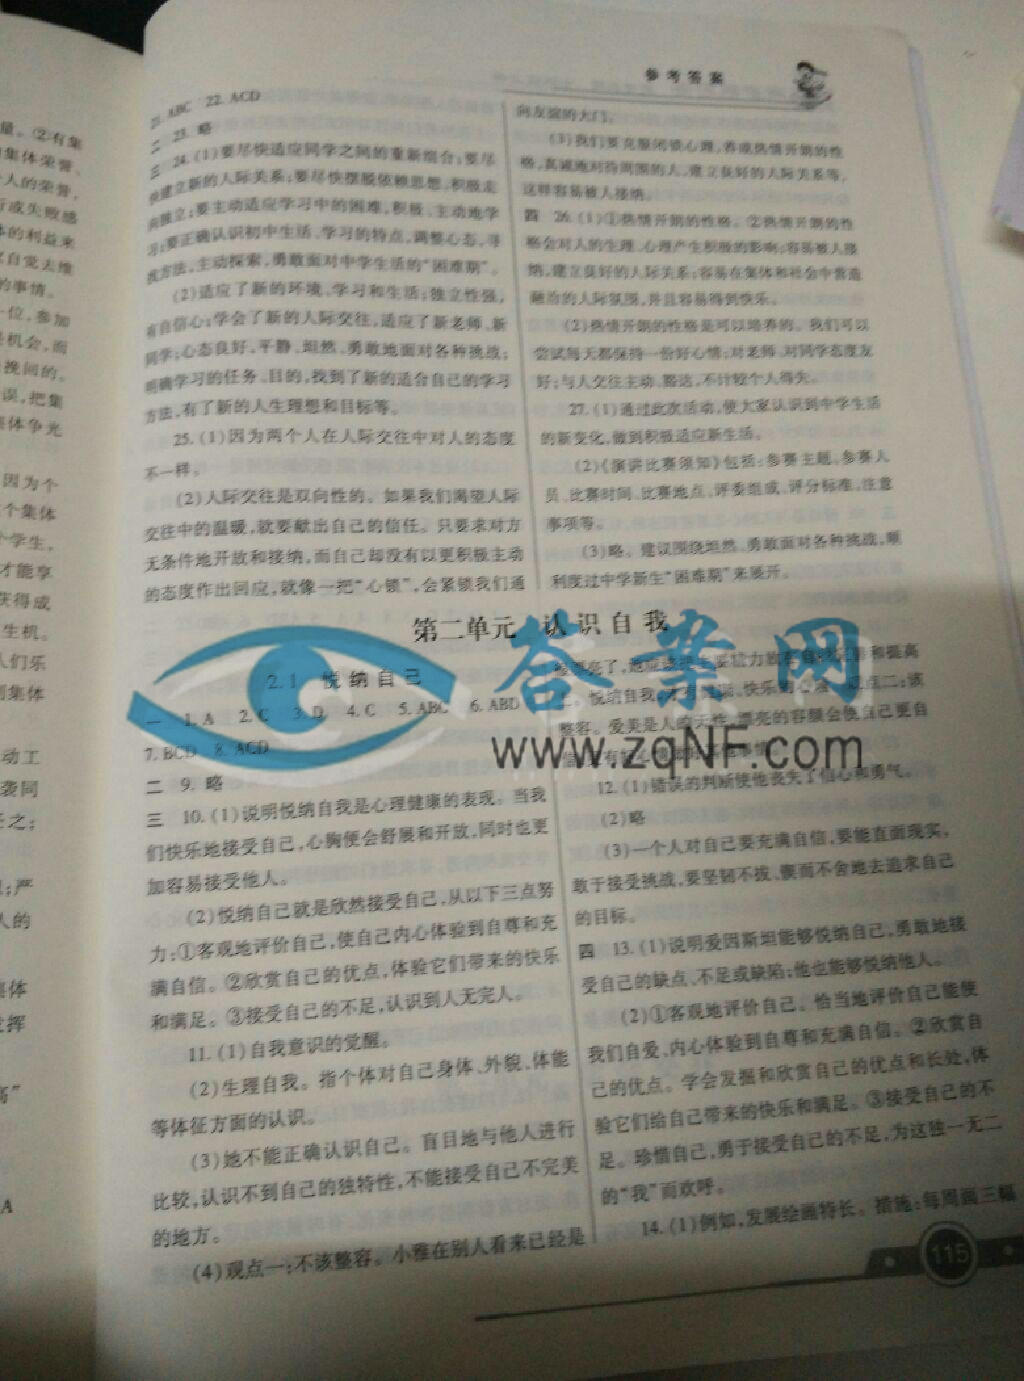 参考答案
21. ABC 22. ACD
二 23. 略
三 24. (1)要尽快适应同学之间的重新组合;要尽
快建立新的人际关系;要尽快摆脱依赖思想,积极走
向独立;要主动适应学习中的困难,积极、主动地学
习;要正确认识初中生活、学习的特点,调整心态,寻
找方法,主动探索,勇敢面对中学生活的“困难期”。
(2)适应了新的环境、学习和生活;独立性强,
有自信心;学会了新的人际交往,适应了新老师、新
同学;心态良好,平静、坦然、勇敢地面对各种挑战;
明确学习的任务、目的,找到了新的适合自己的学习
方法,有了新的人生理想和目标等。
25. (1)因为两个人在人际交往中对人的态度
不一样。
(2)人际交往是双向性的。如果我们渴望人际
交往中的温暖,就要献出自己的信任。只要求对方
无条件地开放和接纳,而自己却没有以更积极主动
的态度作出回应,就像一把“心锁”,会紧锁我们通
向友谊的大门。
(3)我们要克服闭锁心理,养成热情开朗的性
格,真诚地对待周围的人,建立良好的人际关系等,
这样容易被人接纳。
四 26. (1)①热情开朗的性格。②热情开朗的性
格会对人的生理、心理产生积极的影响;容易被人接
纳,建立良好的人际关系;容易在集体和社会中营造
融洽的人际氛围,并且容易得到快乐。
(2)热情开朗的性格是可以培养的。我们可以
尝试每天都保持一份好心情;对老师、对同学态度友
好;与人交往主动、豁达,不计较个人得失。
27. (1)通过此次活动,使大家认识到中学生活
的新变化,做到积极适应新生活。
(2)《演讲比赛须知》包括:参赛主题、参赛人
员、比赛时间、比赛地点、评委组成、评分标准、注意
事项等。
(3)略。建议围绕坦然、勇敢面对各种挑战,顺
利度过中学新生“困难期”来展开。
第二单元 认识自我
2.1 悦纳自己
一 1. A 2. C 3. D 4. C 5. ABC 6. ABD
7. BCD 8. ACD
二 9. 略
三 10. (1)说明悦纳自我是心理健康的表现。当我
们快乐地接受自己,心胸便会舒展和开放,同时也更
加容易接受他人。
(2)悦纳自己就是欣然接受自己,从以下三点努
力:①客观地评价自己,使自己内心体验到自尊和充
满自信。②欣赏自己的优点,体验它们带来的快乐
和满足。③接受自己的不足,认识到人无完人。
11. (1)自我意识的觉醒。
(2)生理自我。指个体对自己身体、外貌、体能
等体征方面的认识。
(3)她不能正确认识自己。盲目地与他人进行
比较,认识不到自己的独特性,不能接受自己不完美
的地方。
(4)观点一:不该整容。小雅在别人看来已经是
和提高
悦纳自我,才有 快乐 点二:该
整容。爱美是人的天性,漂亮的容颜会使自己更自
12. (1)错误的判断使他丧失了信心和勇气。
(2)略
(3)一个人对自己要充满自信,要能直面现实,
敢于接受挑战,要坚韧不拔、锲而不舍地去追求自己
的目标。
四 13. (1)说明爱因斯坦能够悦纳自己,勇敢地接
受自己的缺点、不足或缺陷;他也能够悦纳他人。
(2)①客观地评价自己。恰当地评价自己能使
我们自爱、内心体验到自尊和充满自信。②欣赏自
己的优点。学会发掘和欣赏自己的优点和长处,体
验它们给自己带来的快乐和满足。③接受自己的不
足。珍惜自己,勇于接受自己的不足,为这独一无二
的“我”而欢呼。
14. (1)例如,发展绘画特长。措施:每周画三幅
115
答案网
www.zqNF.com
量。②有集
集体荣誉、
人的荣誉,
或失败感
体的利益来
自觉去维
的事情。
一位,参加
机会,而
挽回的。
误,把集
集体争光
因为个
个集体
个学生,
才能享
获得成
生机。
人们乐
到集体
动工
袭同
任之;
;严
人的
集体
发挥
高”
A